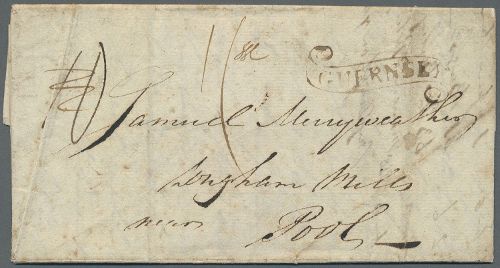 GUERNSE
Samuel Merryweather
Longham Mills
near Pool